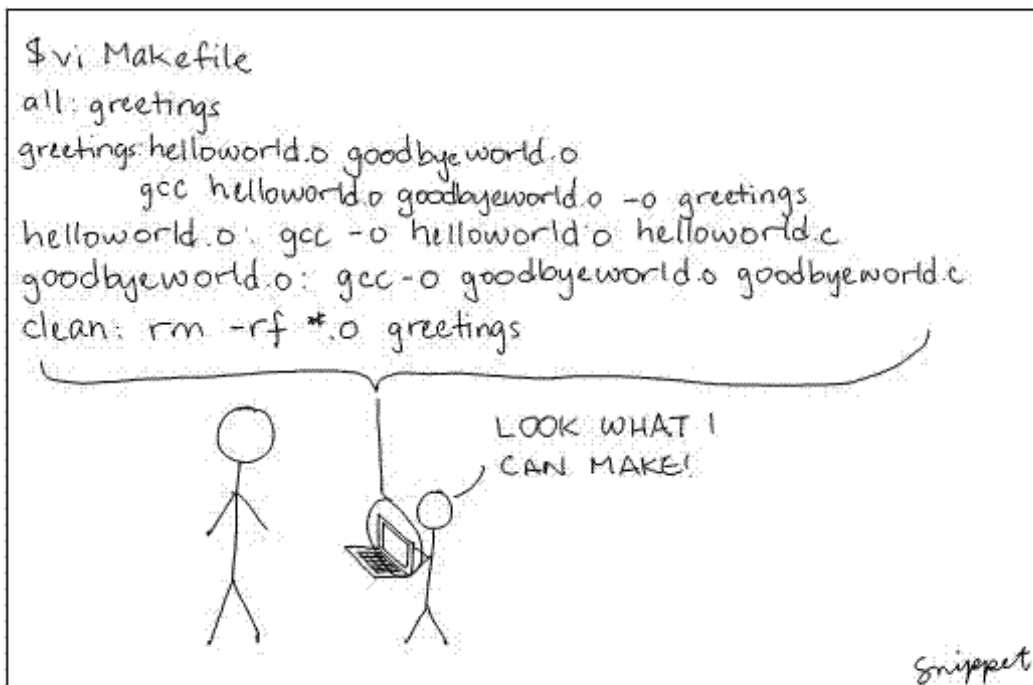 $vi Makefile
all: greetings
greetings: helloworld.o goodbyeworld.o
gcc helloworld.o goodbyeworld.o -o greetings
helloworld.o: gcc -o helloworld.o helloworld.c
goodbyeworld.o: gcc -o goodbyeworld.o goodbyeworld.c
clean: rm -rf *.o greetings
LOOK WHAT I
CAN MAKE!
Snippet